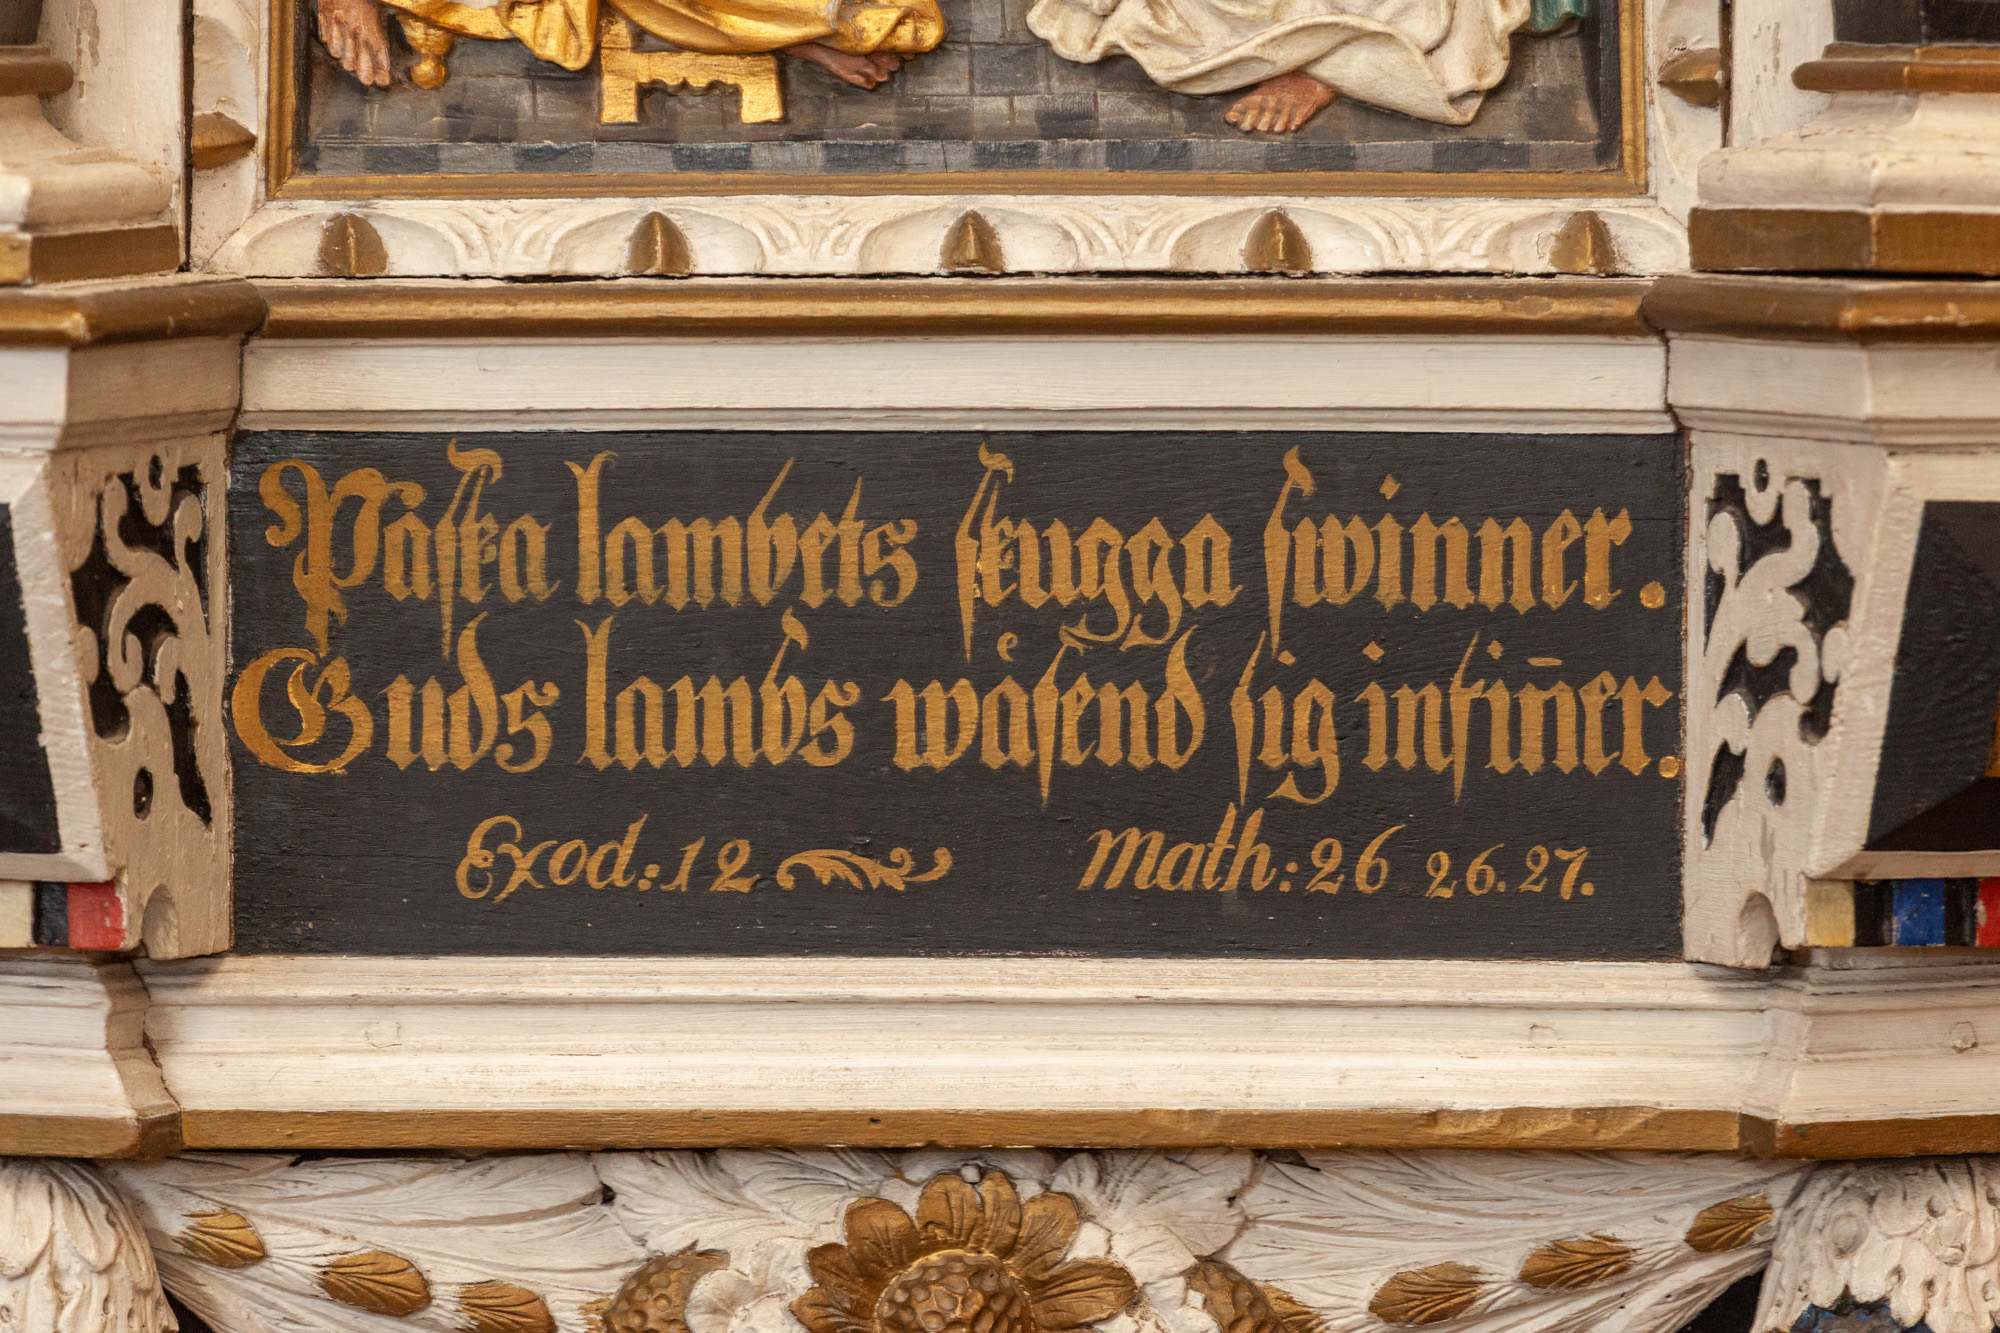 Påska lambets skugga swinner.
Guds lambs wåsend sig infin̄er.
Exod: 12 Math: 26 26. 27.